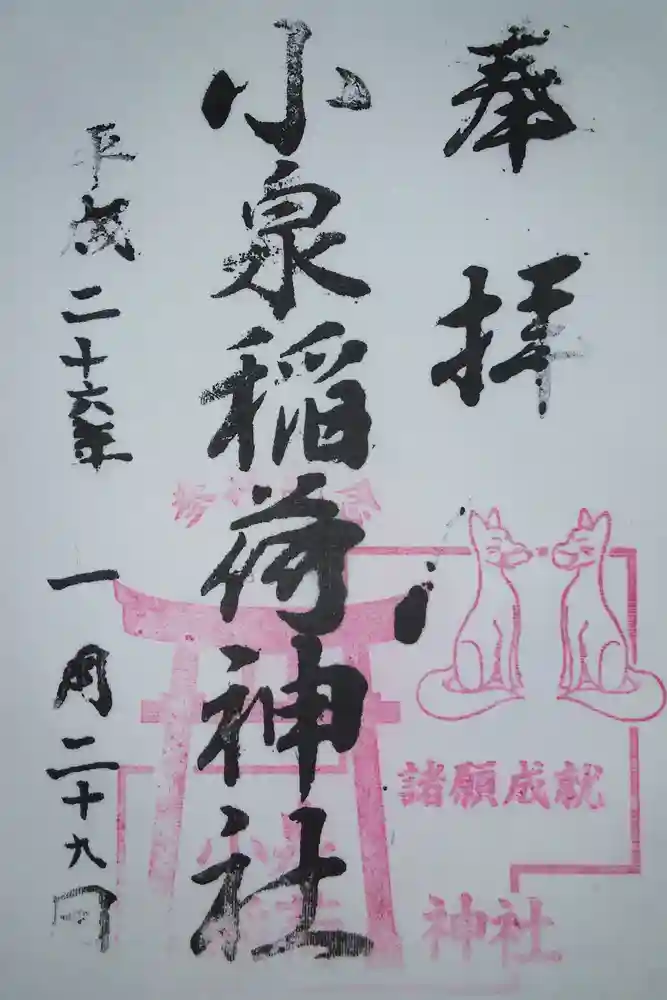 奉拝
小泉稲荷神社
平成二十六年
一月二十九日
諸願成就
神社